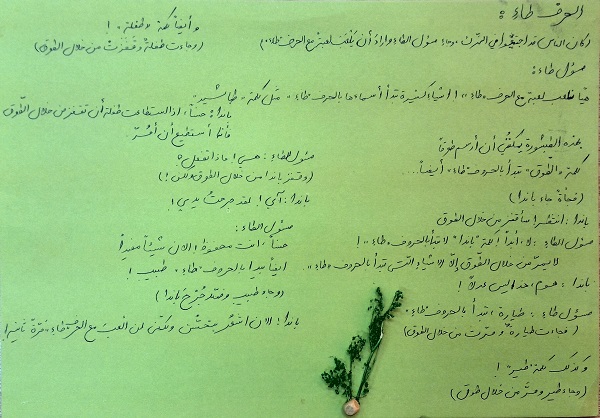 الحرف طاء :
(كان الناس قد اجتمعوا في المخزن. وجاء مسؤل الطاء وأراد أن يلعب لعبة مع الحرف «طاء».)
مسؤل طاء:
هيا نلعب لعبة مع الحرف «طاء»! اشياء كثيرة تبدأ أسماءها بالحرف «طاء» مثل كلمة «طباشير»
بهذه الطبشورة يمكنني أن أرسم طوقاً
كلمة «الطّوق» تبدأ بالحروف «طاء» أيضاً...
(فجأة جاء باندا)
باندا: انتظر! سأقفز من خلال الطوق
مسؤل الطاء: لا، أبداً! كلمة "باندا" لا تبدأ بالحروف «طاء»!
لا يمرّ من خلال الطّوق إلّا الاشياء التي تبدأ بالحروف «طاء».
باندا: هوم، هذا ليس عدلاً!
مسؤل طاء: طيارة، تبدأ بالحروف «طاء».
(فجاءت طيارة ومرت من خلال الطوق)
وكذلك كلمة "طير"!
(وجاء طير ومرّ من خلال طوق)
وأيضاً كلمة «طفلة»!
(وجاءت طفلة وقفزت من خلال الطّوق)
باندا: حسناً، اذا استطاعت طفلة أن تقفز من خلال الطّوق
فأنا أستطيع أن أمُرّ.
مسؤل الطاء: هي! ماذا تفعل؟
(وقفز باندا من خلال الطوق)
باندا: آي! لقد جرحت يدي!
مسؤل الطاء:
حسناً، انت محظوظ! الان شيئاً مفيداً
ايضاً يبدا بالحروف «طاء». طبيب!
(وجاء طبيب وضمّد جُرْحَ باندا)
باندا: الان اشعر بتحسّن ولكن لن العب مع الحرف «طاء» مرّة ثانية!